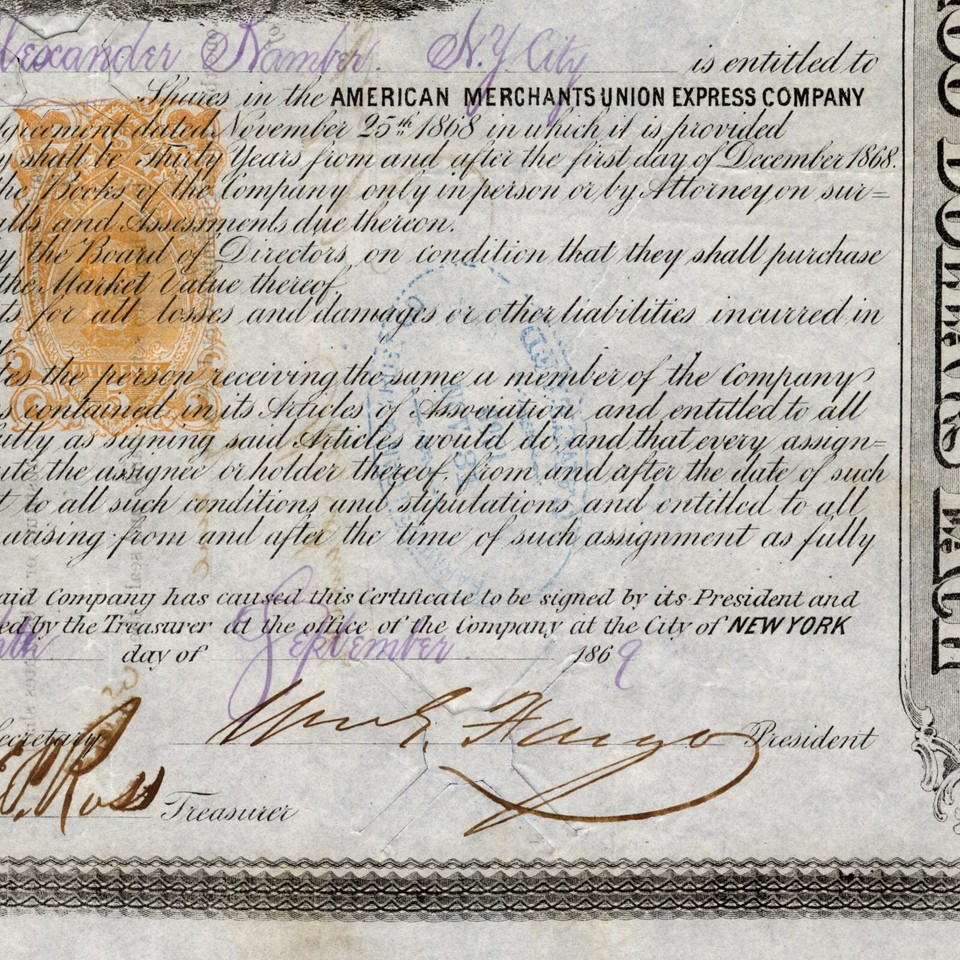 Alexander Kamber. N.Y. City is entitled to
Shares in the AMERICAN MERCHANTS UNION EXPRESS COMPANY
Agreement dated November 25th 1868 in which it is provided
y shall be Thirty Years from and after the first day of December 1868.
the Books of the Company only in person or by Attorney on sur=
alls and Assessments due thereon.
y the Board of Directors, on condition that they shall purchase
the Market Value thereof
ts for all losses and damages or other liabilities incurred in
tes the person receiving the same a member of the Company
s contained in its Articles of Association and entitled to all
fully as signing said Articles would do, and that every assign=
ute the assignee or holder thereof, from and after the date of such
t to all such conditions and stipulations and entitled to all
arising from and after the time of such assignment as fully
aid Company has caused this Certificate to be signed by its President and
ed by the Treasurer at the office of the Company at the City of NEW YORK
day of September 1869
Secretary Wm G. Fargo President
Ross Treasurer
DOLLARS EACH